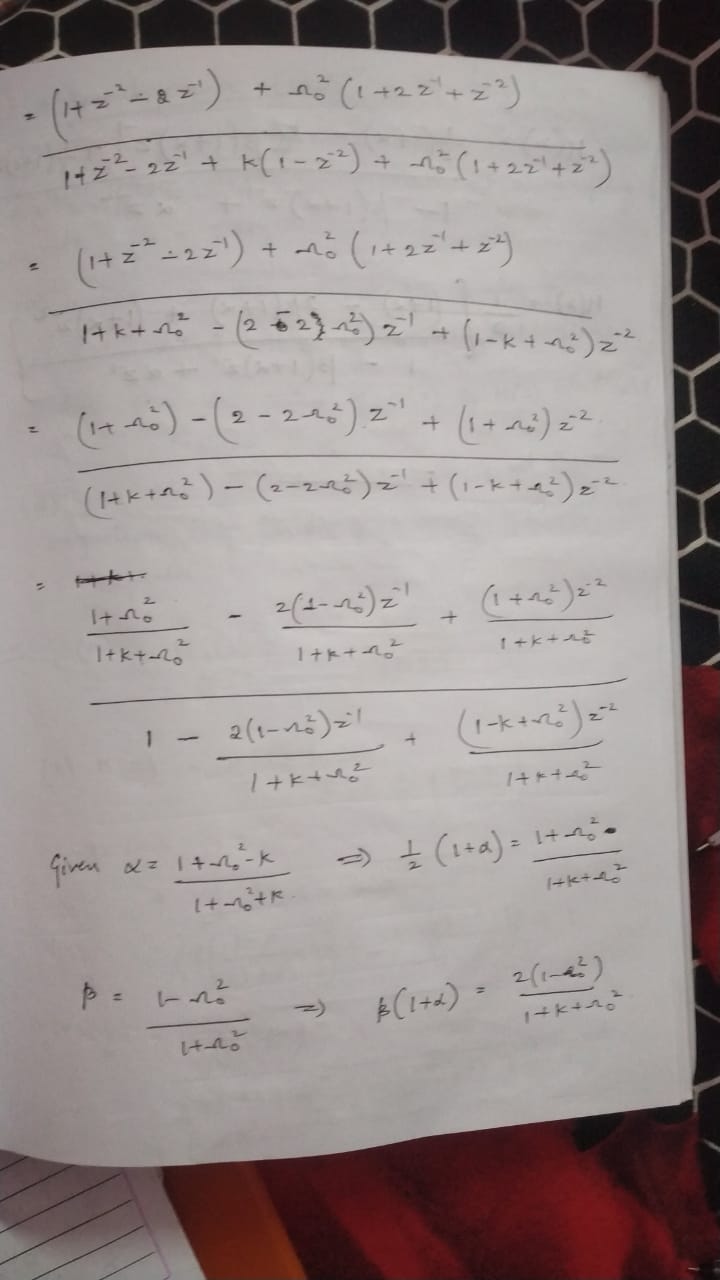 = (1+z⁻²-2z⁻¹) + Ω₀² (1+2z⁻¹+z⁻²)
1+z⁻²-2z⁻¹ + k(1-z⁻²) + Ω₀² (1+2z⁻¹+z⁻²)
= (1+z⁻²-2z⁻¹) + Ω₀² (1+2z⁻¹+z⁻²)
1+k+Ω₀² - (2-2Ω₀²) z⁻¹ + (1-k+Ω₀²) z⁻²
= (1+Ω₀²) - (2-2Ω₀²) z⁻¹ + (1+Ω₀²) z⁻²
(1+k+Ω₀²) - (2-2Ω₀²) z⁻¹ + (1-k+Ω₀²) z⁻²
=
1+Ω₀² - 2(1-Ω₀²) z⁻¹ + (1+Ω₀²) z⁻²
1+k+Ω₀² 1+k+Ω₀² 1+k+Ω₀²
1 - 2(1-Ω₀²) z⁻¹ + (1-k+Ω₀²) z⁻²
1+k+Ω₀² 1+k+Ω₀²
Given α = 1+Ω₀²-k ⇒ ½ (1+α) = 1+Ω₀²
1+Ω₀²+k 1+k+Ω₀²
β = 1-Ω₀² ⇒ β(1+α) = 2(1-Ω₀²)
1+Ω₀² 1+k+Ω₀²